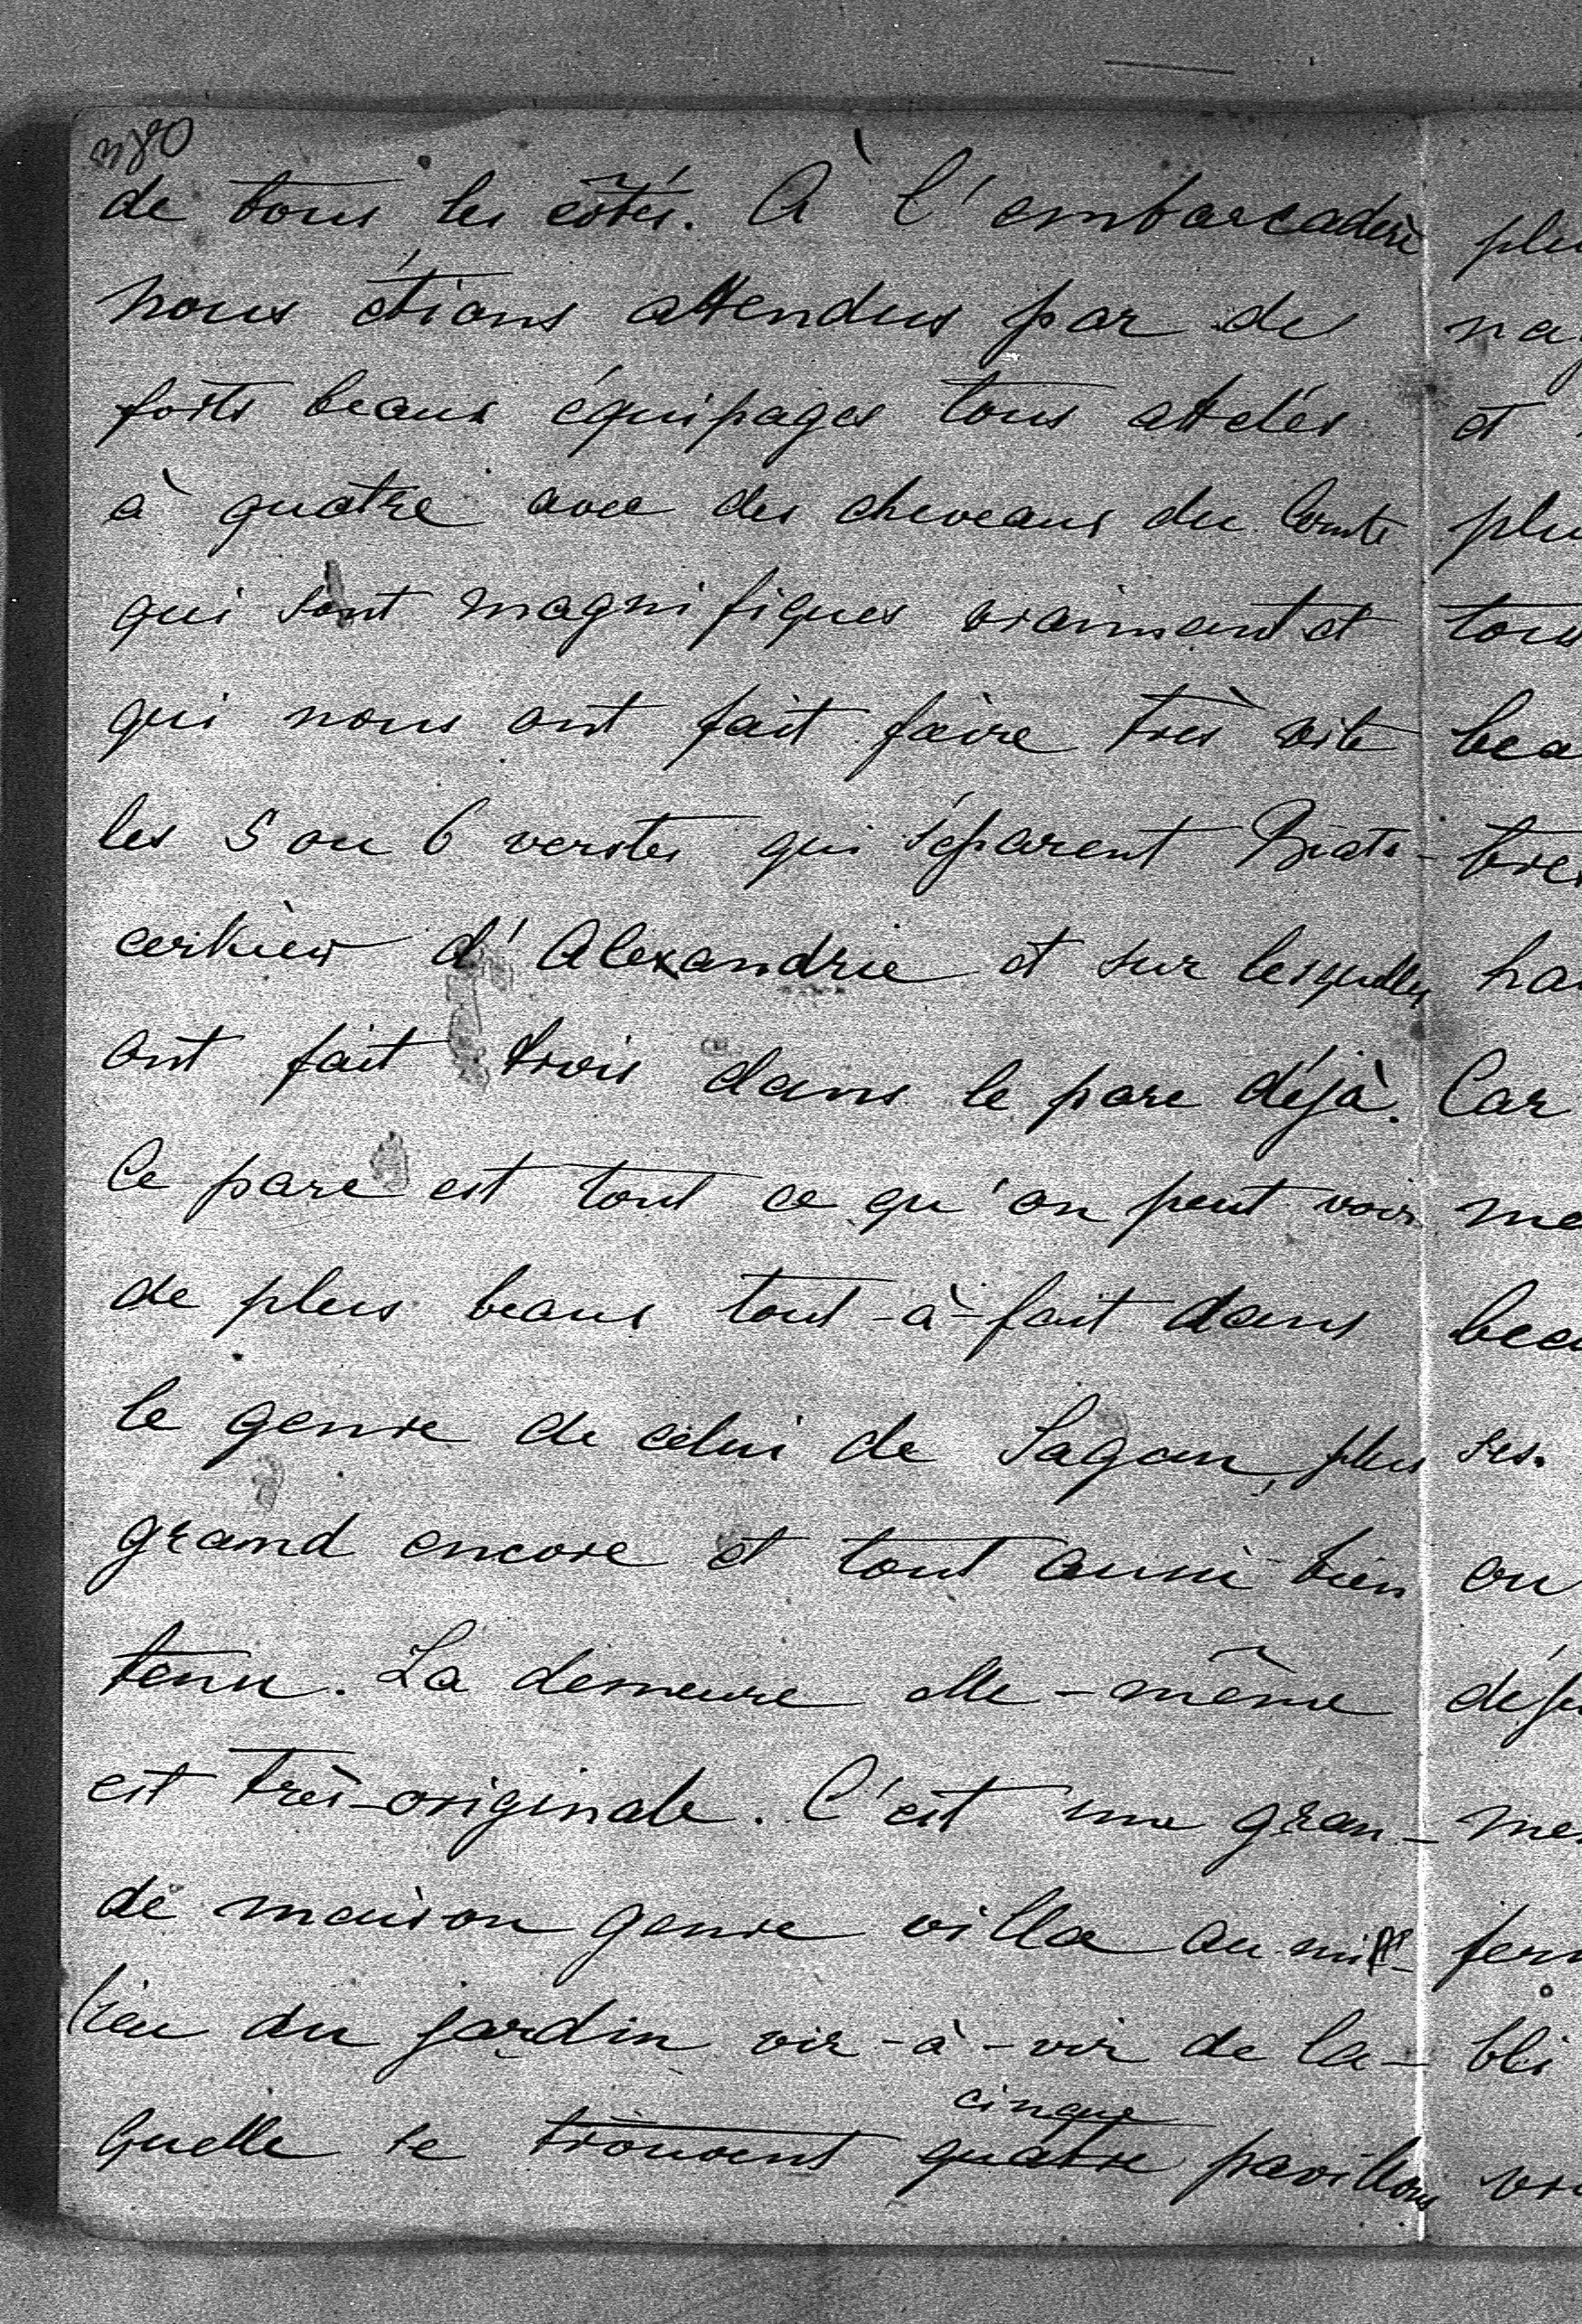 380
de tous les côtés. À l'embarcadère
nous étions attendus par de
forts beaux équipages tous attelés
à quatre avec des cheveaux du Comte
qui sont magnifiques vraiment et
qui nous ont fait faire très vite
les 5 ou 6 verstes qui séparent Biała-
cerkiew d'Alexandrie et sur lesquelles
ont fait trois dans le parc déjà.
Ce parc est tout ce qu'on peut voir
de plus beaux tout-à-fait dans
le genre de celui de Sagan, plus
grand encore et tout aussi bien
tenu. La demeure elle-même
est très-originale. C'est une gran-
de maison genre villa au mi-
lieu du jardin vis-à-vis de la-
quelle se trouvent cinque
quatre pavillons
plu
na
et
plu
tous
bea
ha
Car
me
bea
ses.
on
me
fer
bli